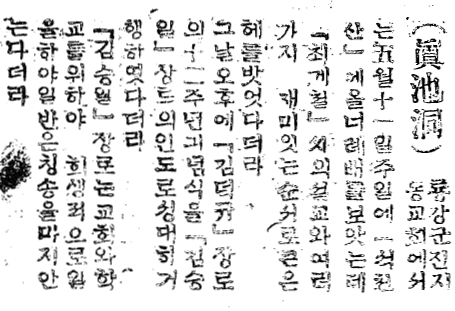 (眞池洞)
룡강군진지
동교회에서
는五월十一일주일에
산」에올너례배를보앗는데
『최게철』씨의설교와여러
가지 재미잇는순서로큰은
헤를밧엇다더라
그날오후에『김덕균』장로
의十二주년긔념식을『김승
일』장로의인도로성대히거
행하엿다더라
『김승월』장로는교회와학
교를위하야 희생적으로일
을하야일반은칭송을마지안
는다더라